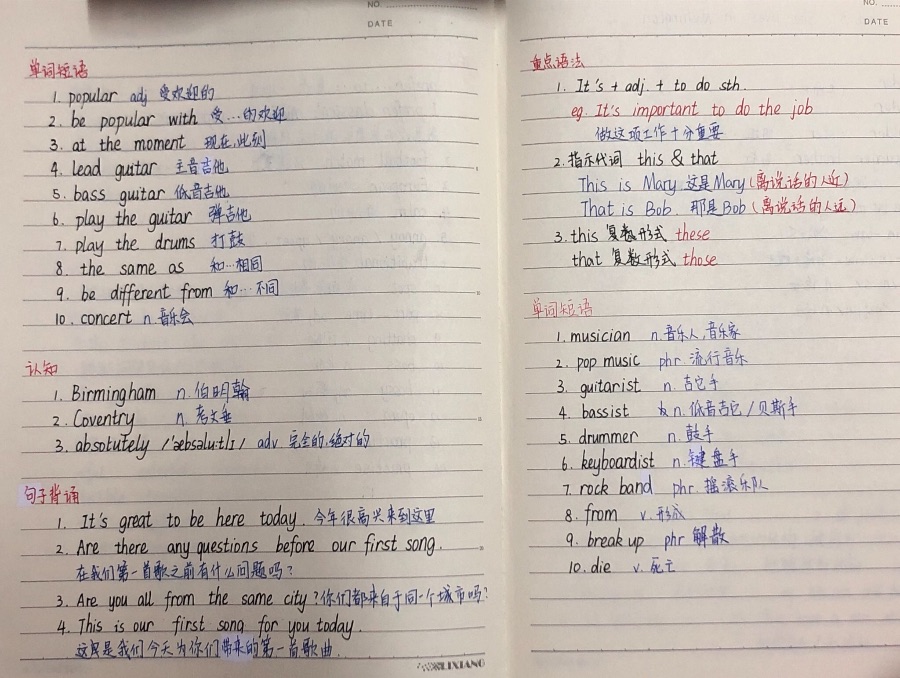 NO.
DATE
单词短语
1. popular adj 受欢迎的
2. be popular with 受…的欢迎
3. at the moment 现在,此刻
4. lead guitar 主音吉他
5. bass guitar 低音吉他
6. play the guitar 弹吉他
7. play the drums 打鼓
8. the same as 和…相同
9. be different from 和…不同
10. concert n. 音乐会
认知
1. Birmingham n. 伯明翰
2. Coventry n. 考文垂
3. absolutely /'æbsəlu:tlɪ/ adv 完全的,绝对的
句子背诵
1. It's great to be here today. 今年很高兴来到这里
2. Are there any questions before our first song.
在我们第一首歌之前有什么问题吗?
3. Are you all from the same city? 你们都来自于同一个城市吗?
4. This is our first song for you today.
这是我们今天为你们带来的第一首歌曲.
LIXIANG
NO.
DATE
重点语法
1. It's + adj. + to do sth.
eg. It's important to do the job
做这项工作十分重要
2. 指示代词 this & that
This is Mary 这是Mary(离说话的人近)
That is Bob. 那是Bob(离说话的人远)
3. this 复数形式 these
that 复数形式 those
单词短语
1. musician n. 音乐人,音乐家
2. pop music phr. 流行音乐
3. guitarist n. 吉它手
4. bassist n. 低音吉它/贝斯手
5. drummer n. 鼓手
6. keyboardist n. 键盘手
7. rock band phr. 摇滚乐队
8. from v. 形成
9. break up phr 解散
10. die v. 死亡